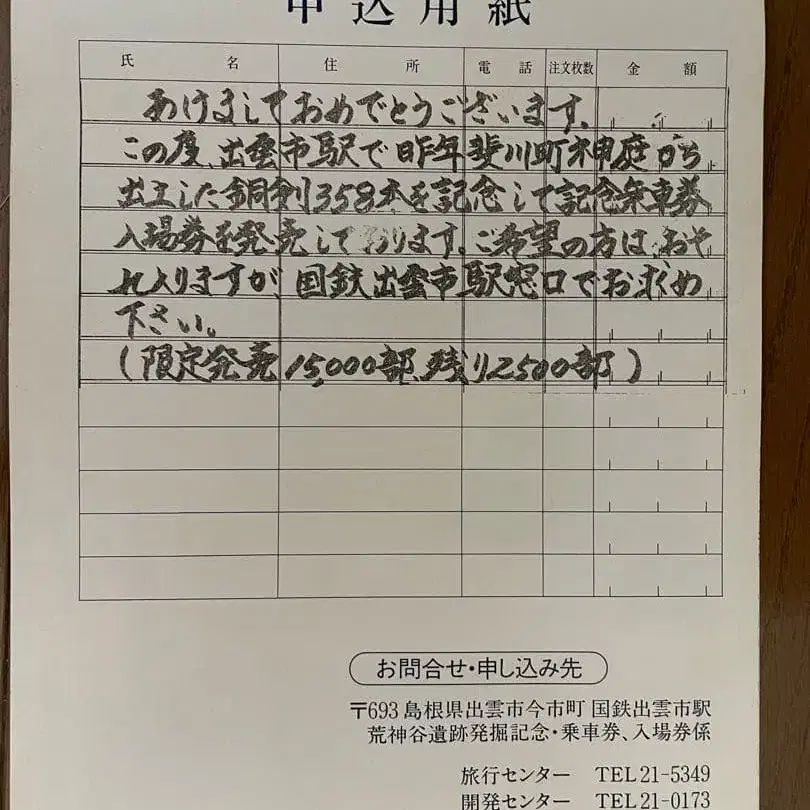 申込用紙
氏名 住所 電話 注文枚数 金額
あけましておめでとうございます。
この度、出雲市駅で昨年斐川町神庭から
出土した銅剣358本を記念して記念乗車券
入場券を発売しております。ご希望の方は、おそ
れ入りますが、国鉄出雲市駅窓口でお求め
下さい。
(限定発売15,000部、残り2500部)
お問合せ・申し込み先
〒693 島根県出雲市今市町 国鉄出雲市駅
荒神谷遺跡発掘記念・乗車券、入場券係
旅行センター TEL 21-5349
開発センター TEL 21-0173